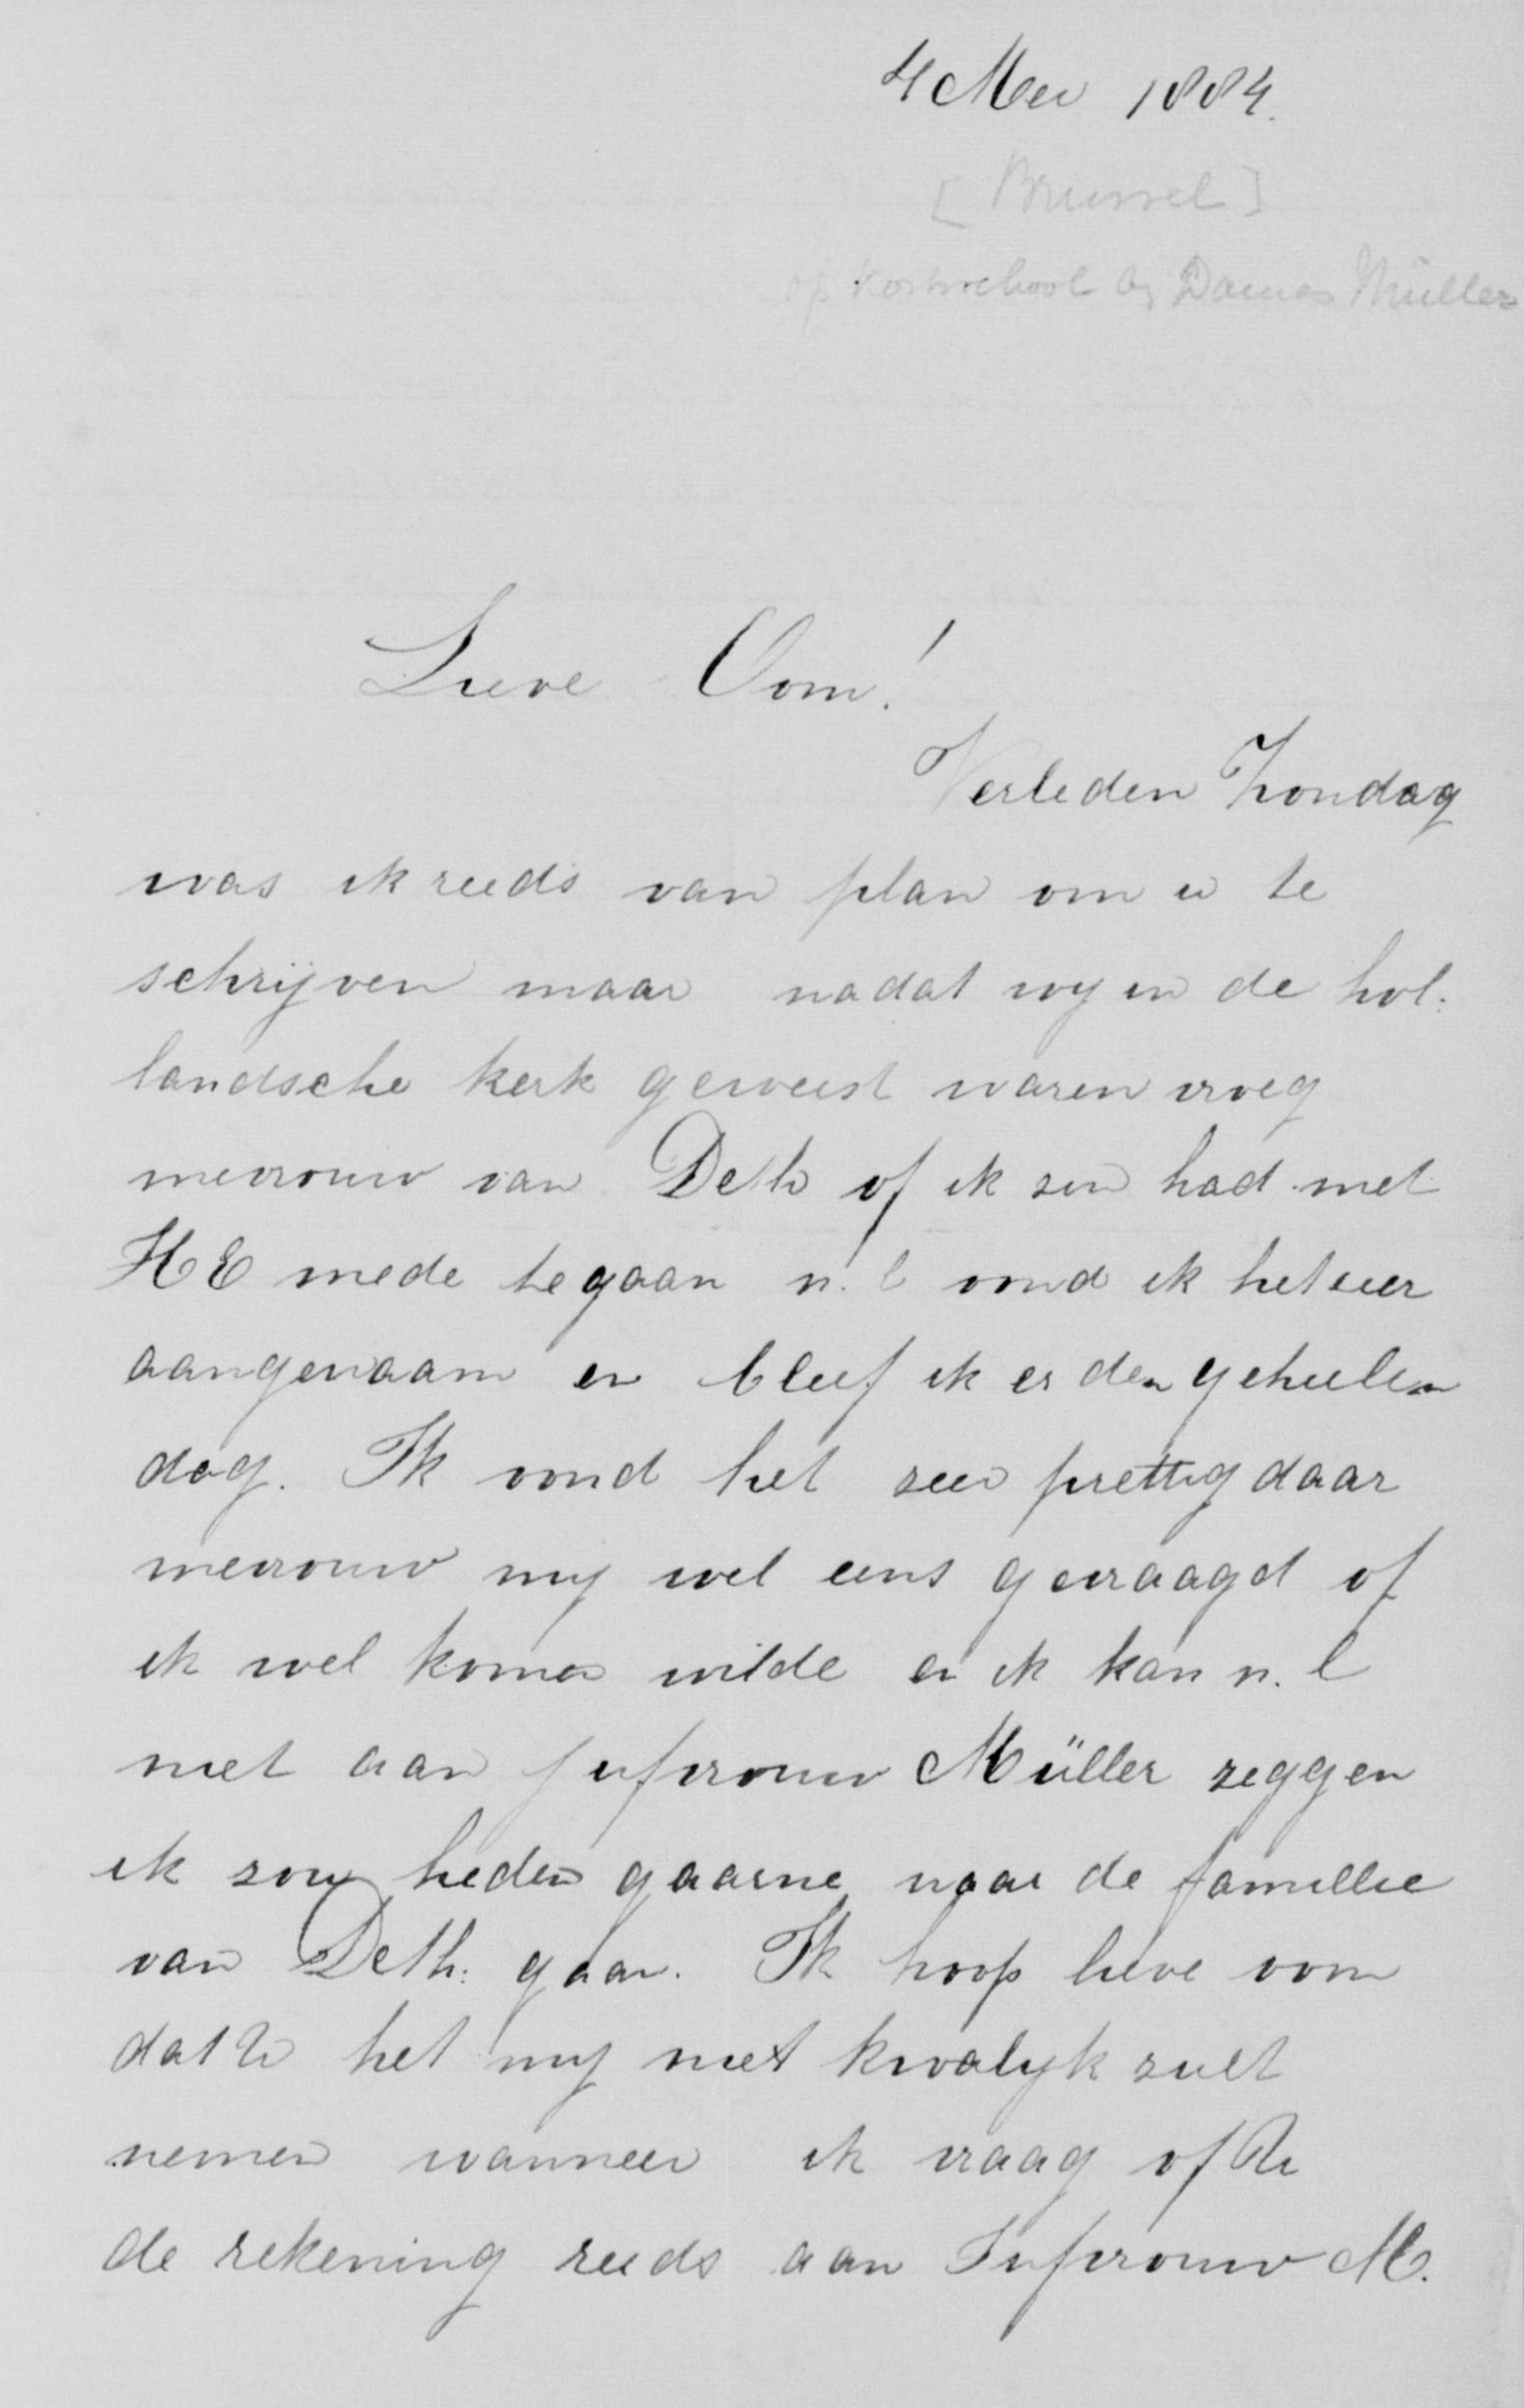 4 Mei 1884.
[Brussel]
op kostschool bij Dames Müller
Lieve Oom!
Verleden Zondag
was ik reeds van plan om u te
schrijven maar nadat wij in de hol-
landsche kerk geweest waren vroeg
mevrouw van Deth of ik zin had met
HE mede te gaan n.l vond ik het zeer
aangenaam en bleef ik er den geheelen
dag. Ik vond het zeer prettig daar
mevrouw mij wel eens gevraagd of
ik wel komen wilde en ik kan n.l
niet aan jufvrouw Müller zeggen
ik zou heden gaarne naar de famillie
van Deth: gaan. Ik hoop lieve oom
dat U het mij niet kwalijk zult
nemen wanneer ik vraag of U
de rekening reeds aan Jufvrouw M.